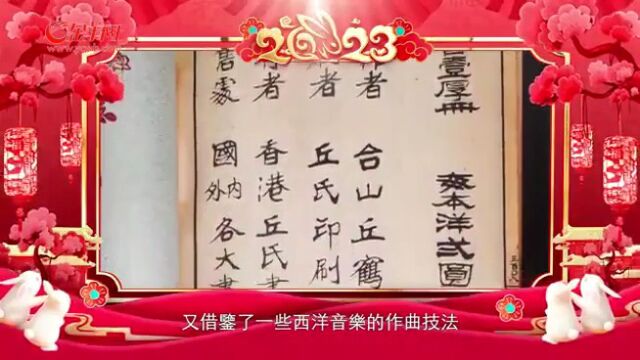 金羊网
2023
壹厚冊 每本洋弍圓
者 台山丘鶴
者 丘氏印刷
者 香港丘氏
售處 國內外各大
又借鑒了一些西洋音樂的作曲技法